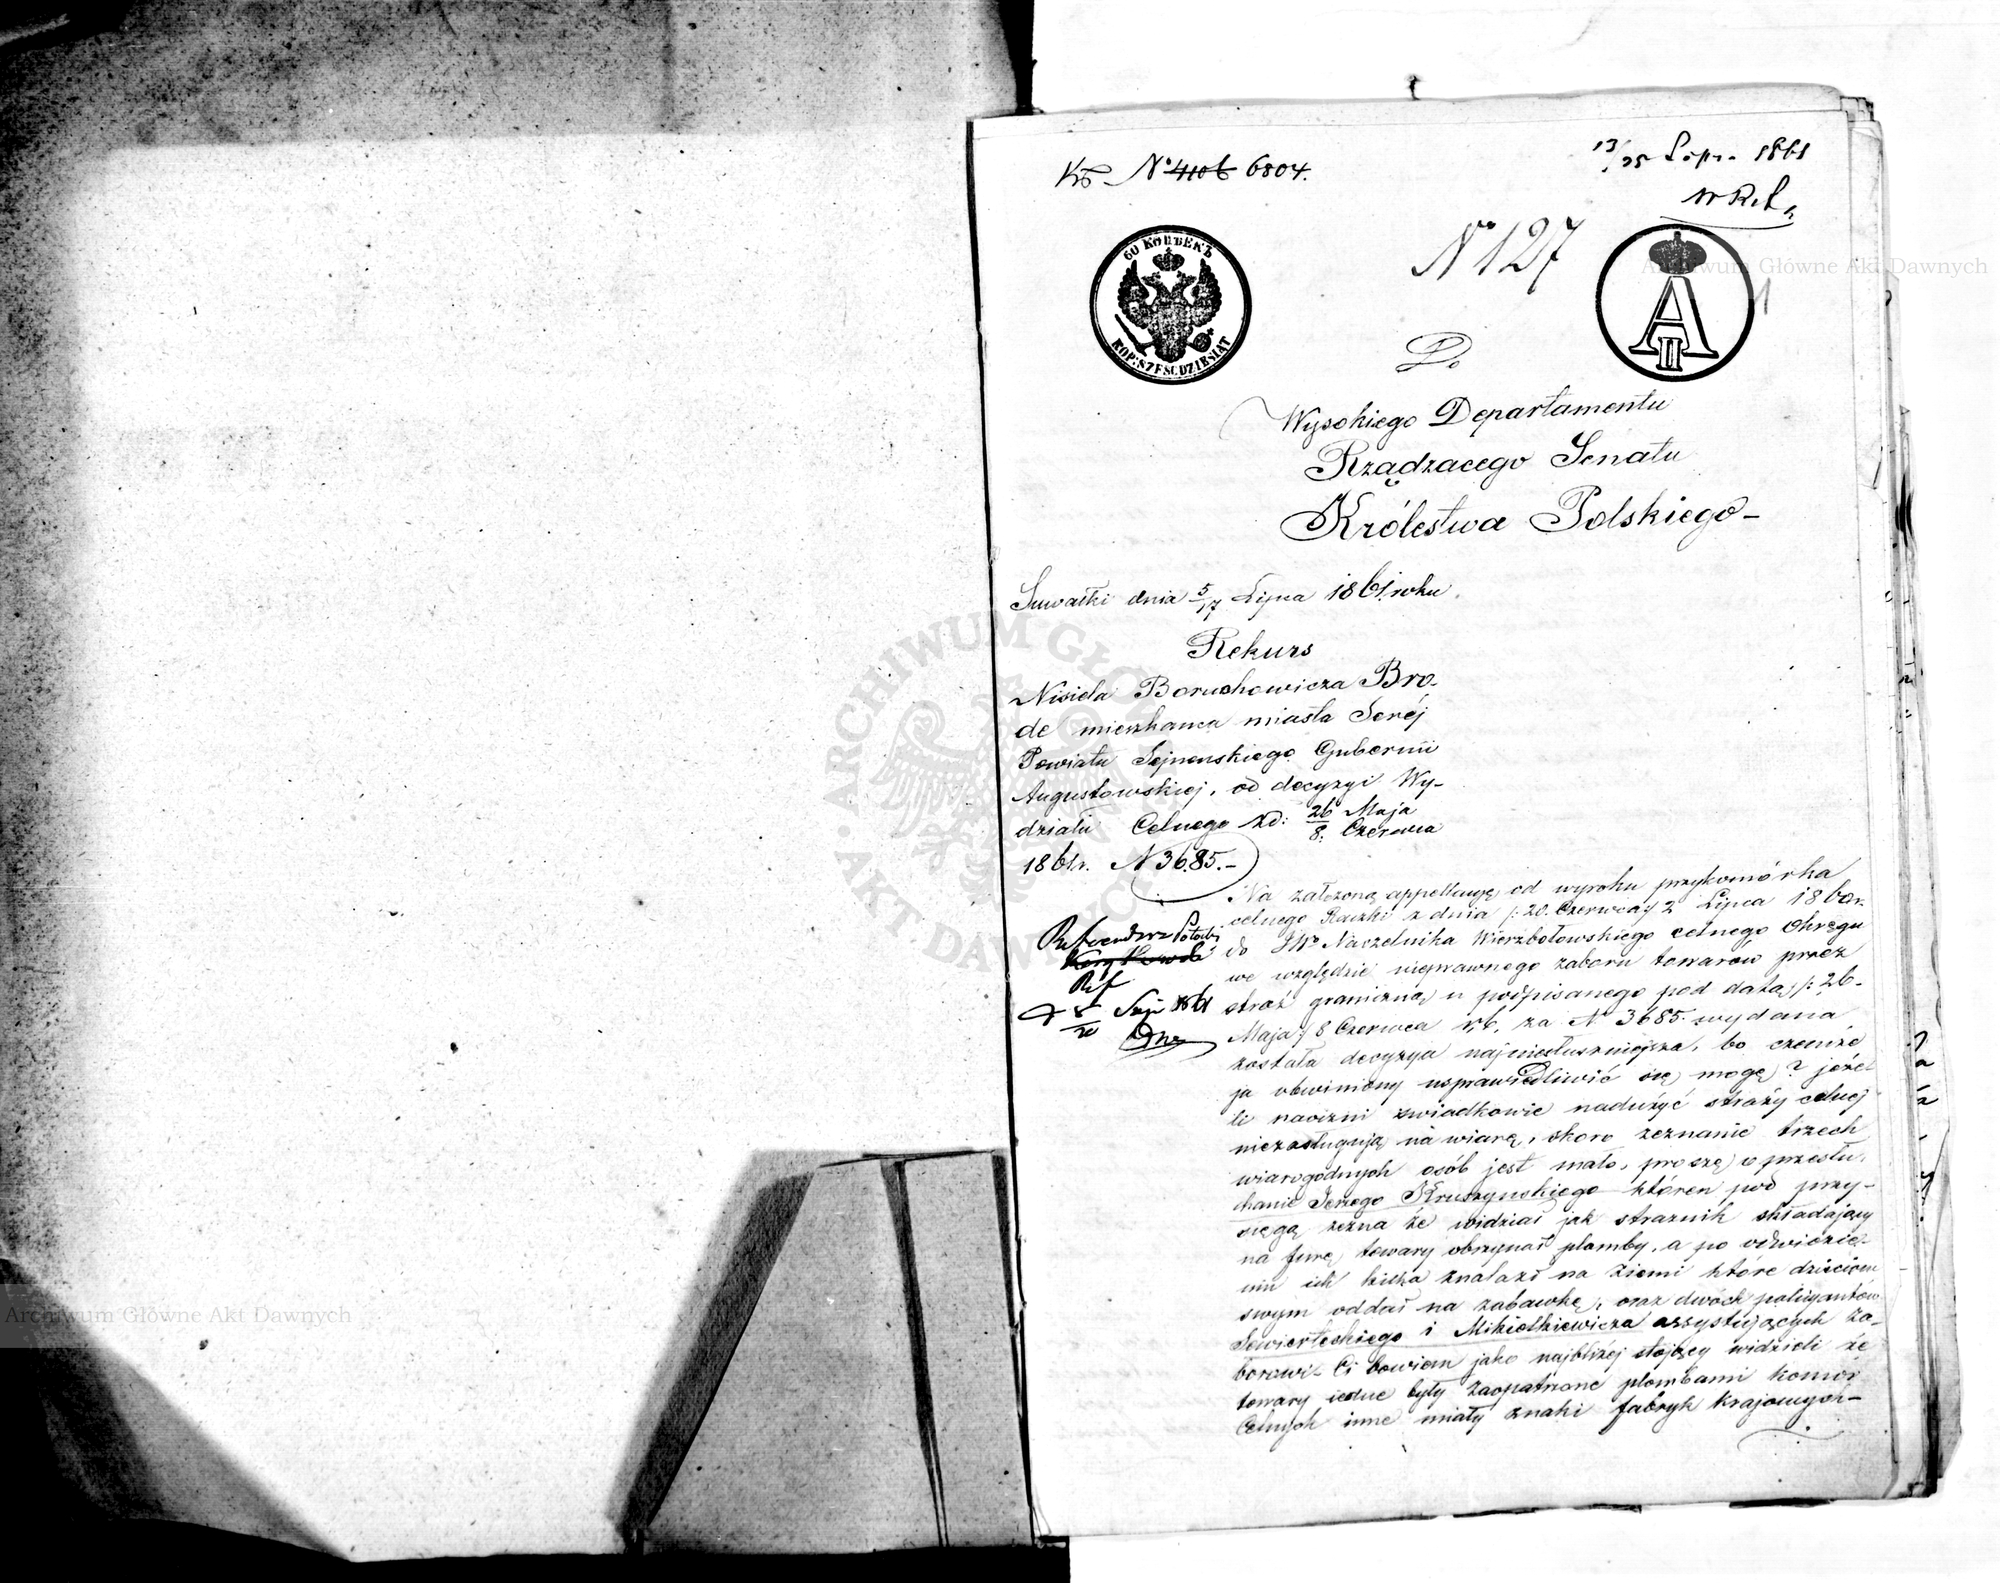 N° 4106 6804.
13/25 1861
N° 127
60 КОПѢЕКЪ
KOP: SZEŚĆDZIESIĄT
A II
Do
Wysokiego Departamentu
Rządzacego Senatu
Królestwa Polskiego –
Suwałki dnia 5/17 Lipca 1861. roku.
Rekurs
Nisiela Boruchowicza Bro-
de mieszkanca miasta Serėj
Powiatu Sejnenskiego Gubernii
Augustowskiej, od decyzyi Wy-
działu Celnego zd: 26 Maja
8. Czerwca
1861r. N 3685.–
Na założoną appellacyę od wyroku przykomórka
celnego Raczki z dnia /: 20. Czerwca :/ 2 Lipca 1860r.
do JW° Naczelnika Wierzbołowskiego celnego Okręgu
we względzie nieprawnego zaboru towarów przez
straż graniczną u podpisanego pod datą /: 26-
Maja :/ 8 Czerwca r.b. za N° 3685. wydana
została decyzya najniesłuszniejsza, bo czemże
ja obwiniony usprawiedliwić się mogę? jeże-
li naoczni świadkowie nadużyć straży celnej
niezasługują na wiarę, skoro zeznanie trzech
wiarogodnych osób jest mało, proszę o przesłu-
chanie Jerzego Kruszynskiego któren pod przy-
sięgą zezna że widział jak straznik składający
na furę towary obrzynał plomby, a po
ich kilka znalazł na Ziemi które dzieciom
swym oddał na zabawkę, oraz dwóch policyantów
i Mikielkiewicza assystujących za-
borowi – Ci bowiem jako najbliżej stojący widzieli że
towary iedne były zaopatrzone plombami komor
Celnych inne miały znaki fabryk Krajowych –
Referendarz Potocki
Ref
1861
ARCHIWUM GŁÓWNE AKT DAWNYCH
Archiwum Główne Akt Dawnych
Archiwum Główne Akt Dawnych